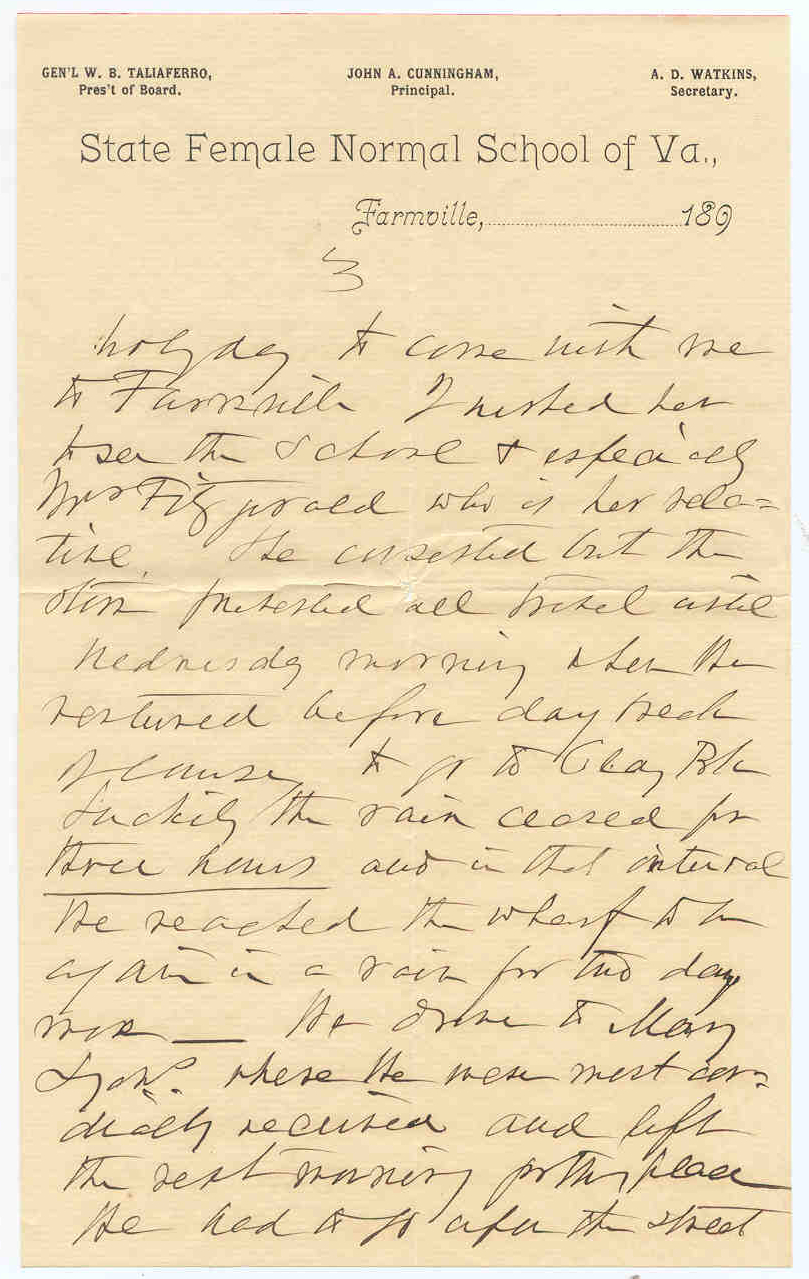 GEN'L W. B. TALIAFERRO,
Pres't of Board.
JOHN A. CUNNINGHAM,
Principal.
A. D. WATKINS,
Secretary.
State Female Normal School of Va.,
Farmville, 189
3
holyday to come with me
to Farmville I wished her
to see the School & especially
Mrs Fitzgerald who is her rela=
tive. She consented but the
storm prevented all travel until
Wednesday morning when we
ventured before day break
of course, to go to Clay Bk
Luckily the rain ceased for
three hours and in that interval
We reached the wharf to be
again in a rain for two days
more — We drove to Mary
where we were most cor=
dially received and left
the next morning for this place
We had to go up the street